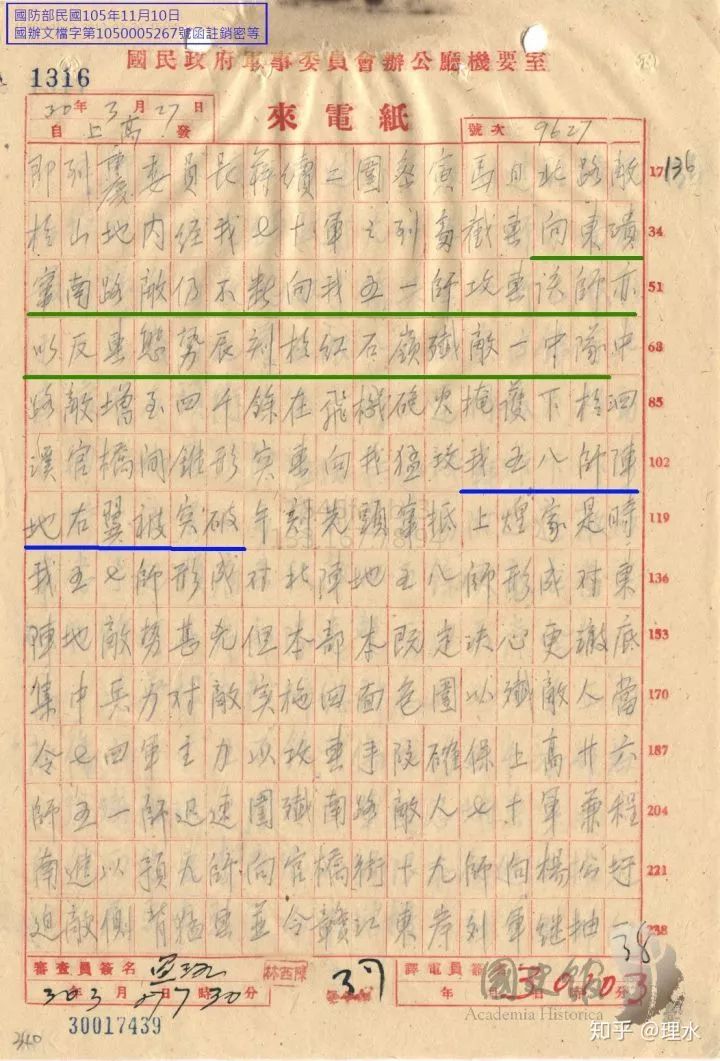 國防部民國105年11月10日
國辦文檔字第1050005267號函註銷密等
國民政府軍事委員會辦公廳機要室
1316
30年3月27日
自上高發
來電紙
號次 9627
即到重慶委員長蔣續二圍丞寅馬日北路敵 17 136
於山地內經我七十軍之列截擊向東潰 34
竄南路敵仍不斷向我五一師攻擊該師亦 51
以反擊態勢辰刻於紅石嶺殲敵一中隊中 68
路敵增至四千餘在飛機砲火掩護下於泗 85
溪官橋間錐形突擊向我猛攻我五八師陣 102
地右翼被突破午刻先頭竄抵上煌家是時 119
我五七師形成對北陣地五八師形成對東 136
陣地敵勢甚兇但本部本既定決心更澈底 153
集中兵力對敵實施四面包圍以殲敵人當 170
令七四軍主力以攻擊手段確保上高廿六 187
師五一師迅速圍殲南路敵人七十軍兼程 204
南進以預九師向官橋街十九師向楊公圩 221
迫敵側背猛擊並令贛江東岸列軍繼抽一 238
38
審查員簽名
林西陳
譯電員簽名
30年3月27日 時30分
年 日 時 分
國史館
Academia Historica
30017439
知乎 @理水